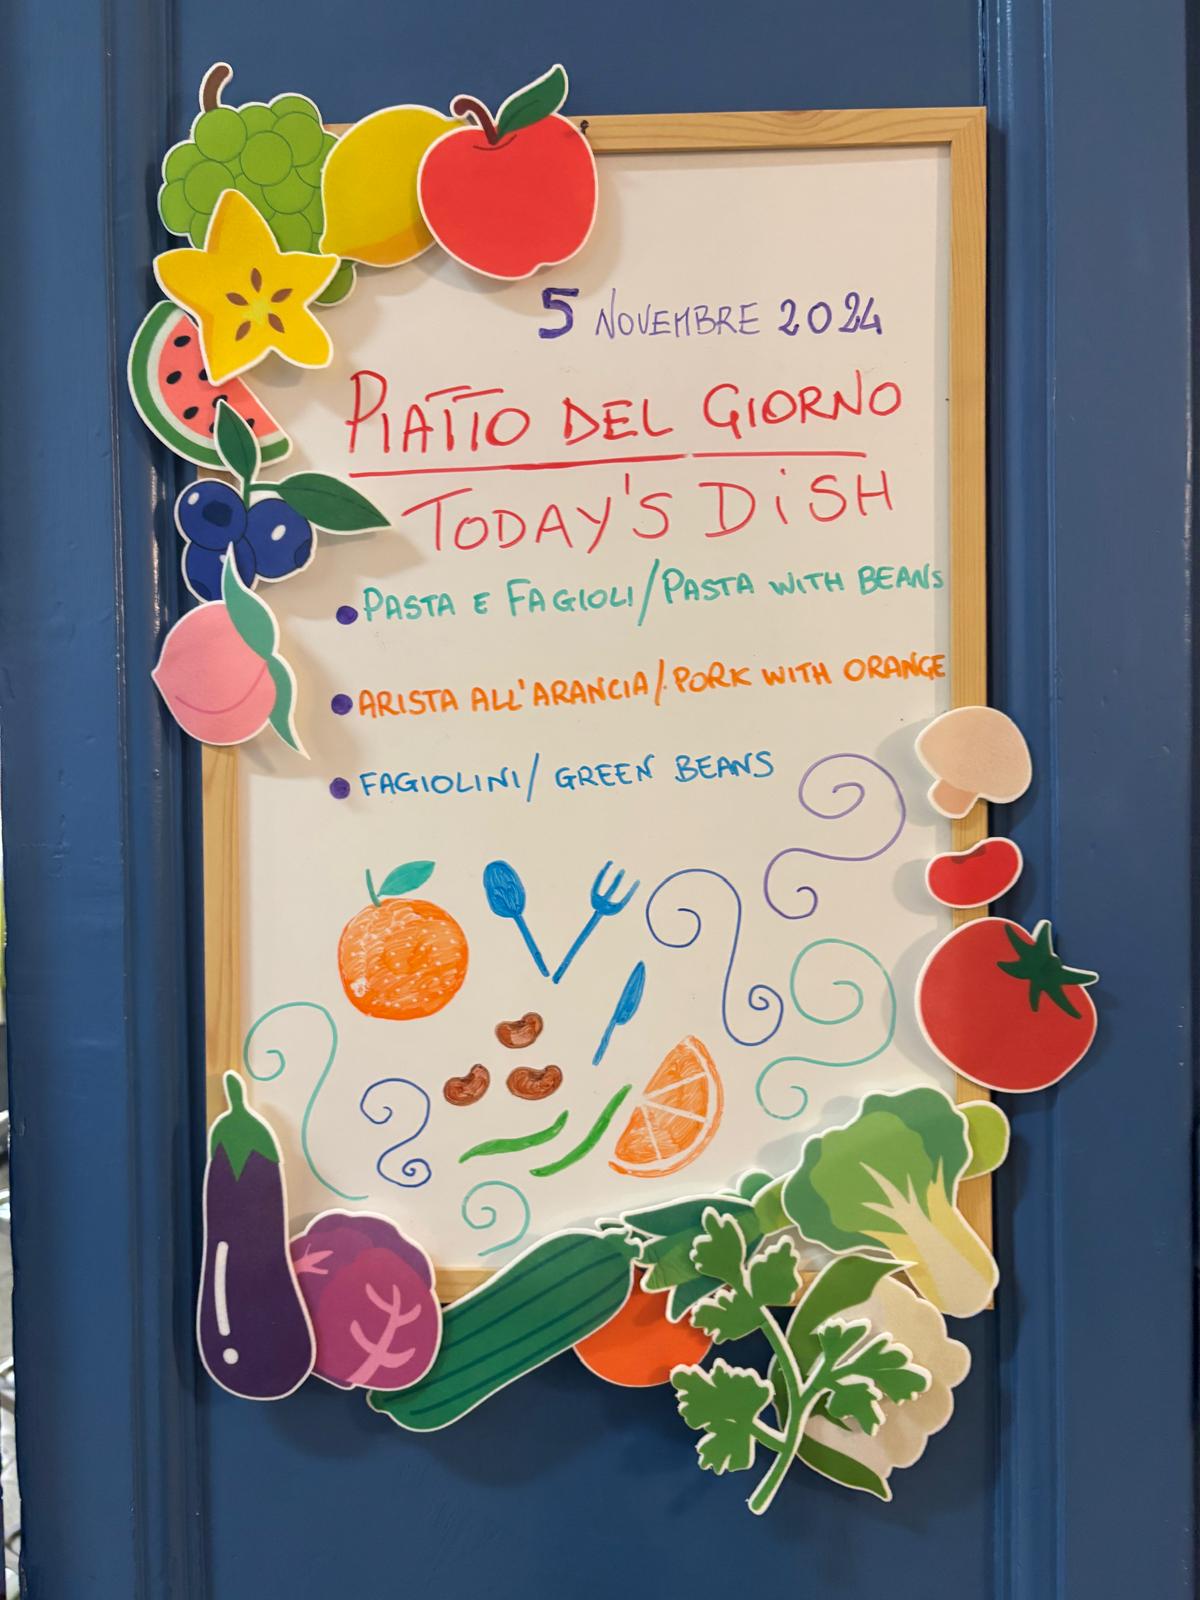 5 NOVEMBRE 2024
PIATTO DEL GIORNO
TODAY'S DiSH
• PASTA E FAGIOLI/PASTA WITH BEANS
• ARISTA ALL'ARANCIA/PORK WITH ORANGE
• FAGIOLINI/ GREEN BEANS